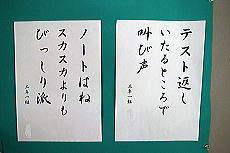 テスト返し
いたるところで
叫び声
三年一組
ノートはね
スカスカよりも
びっしり派
三年一組